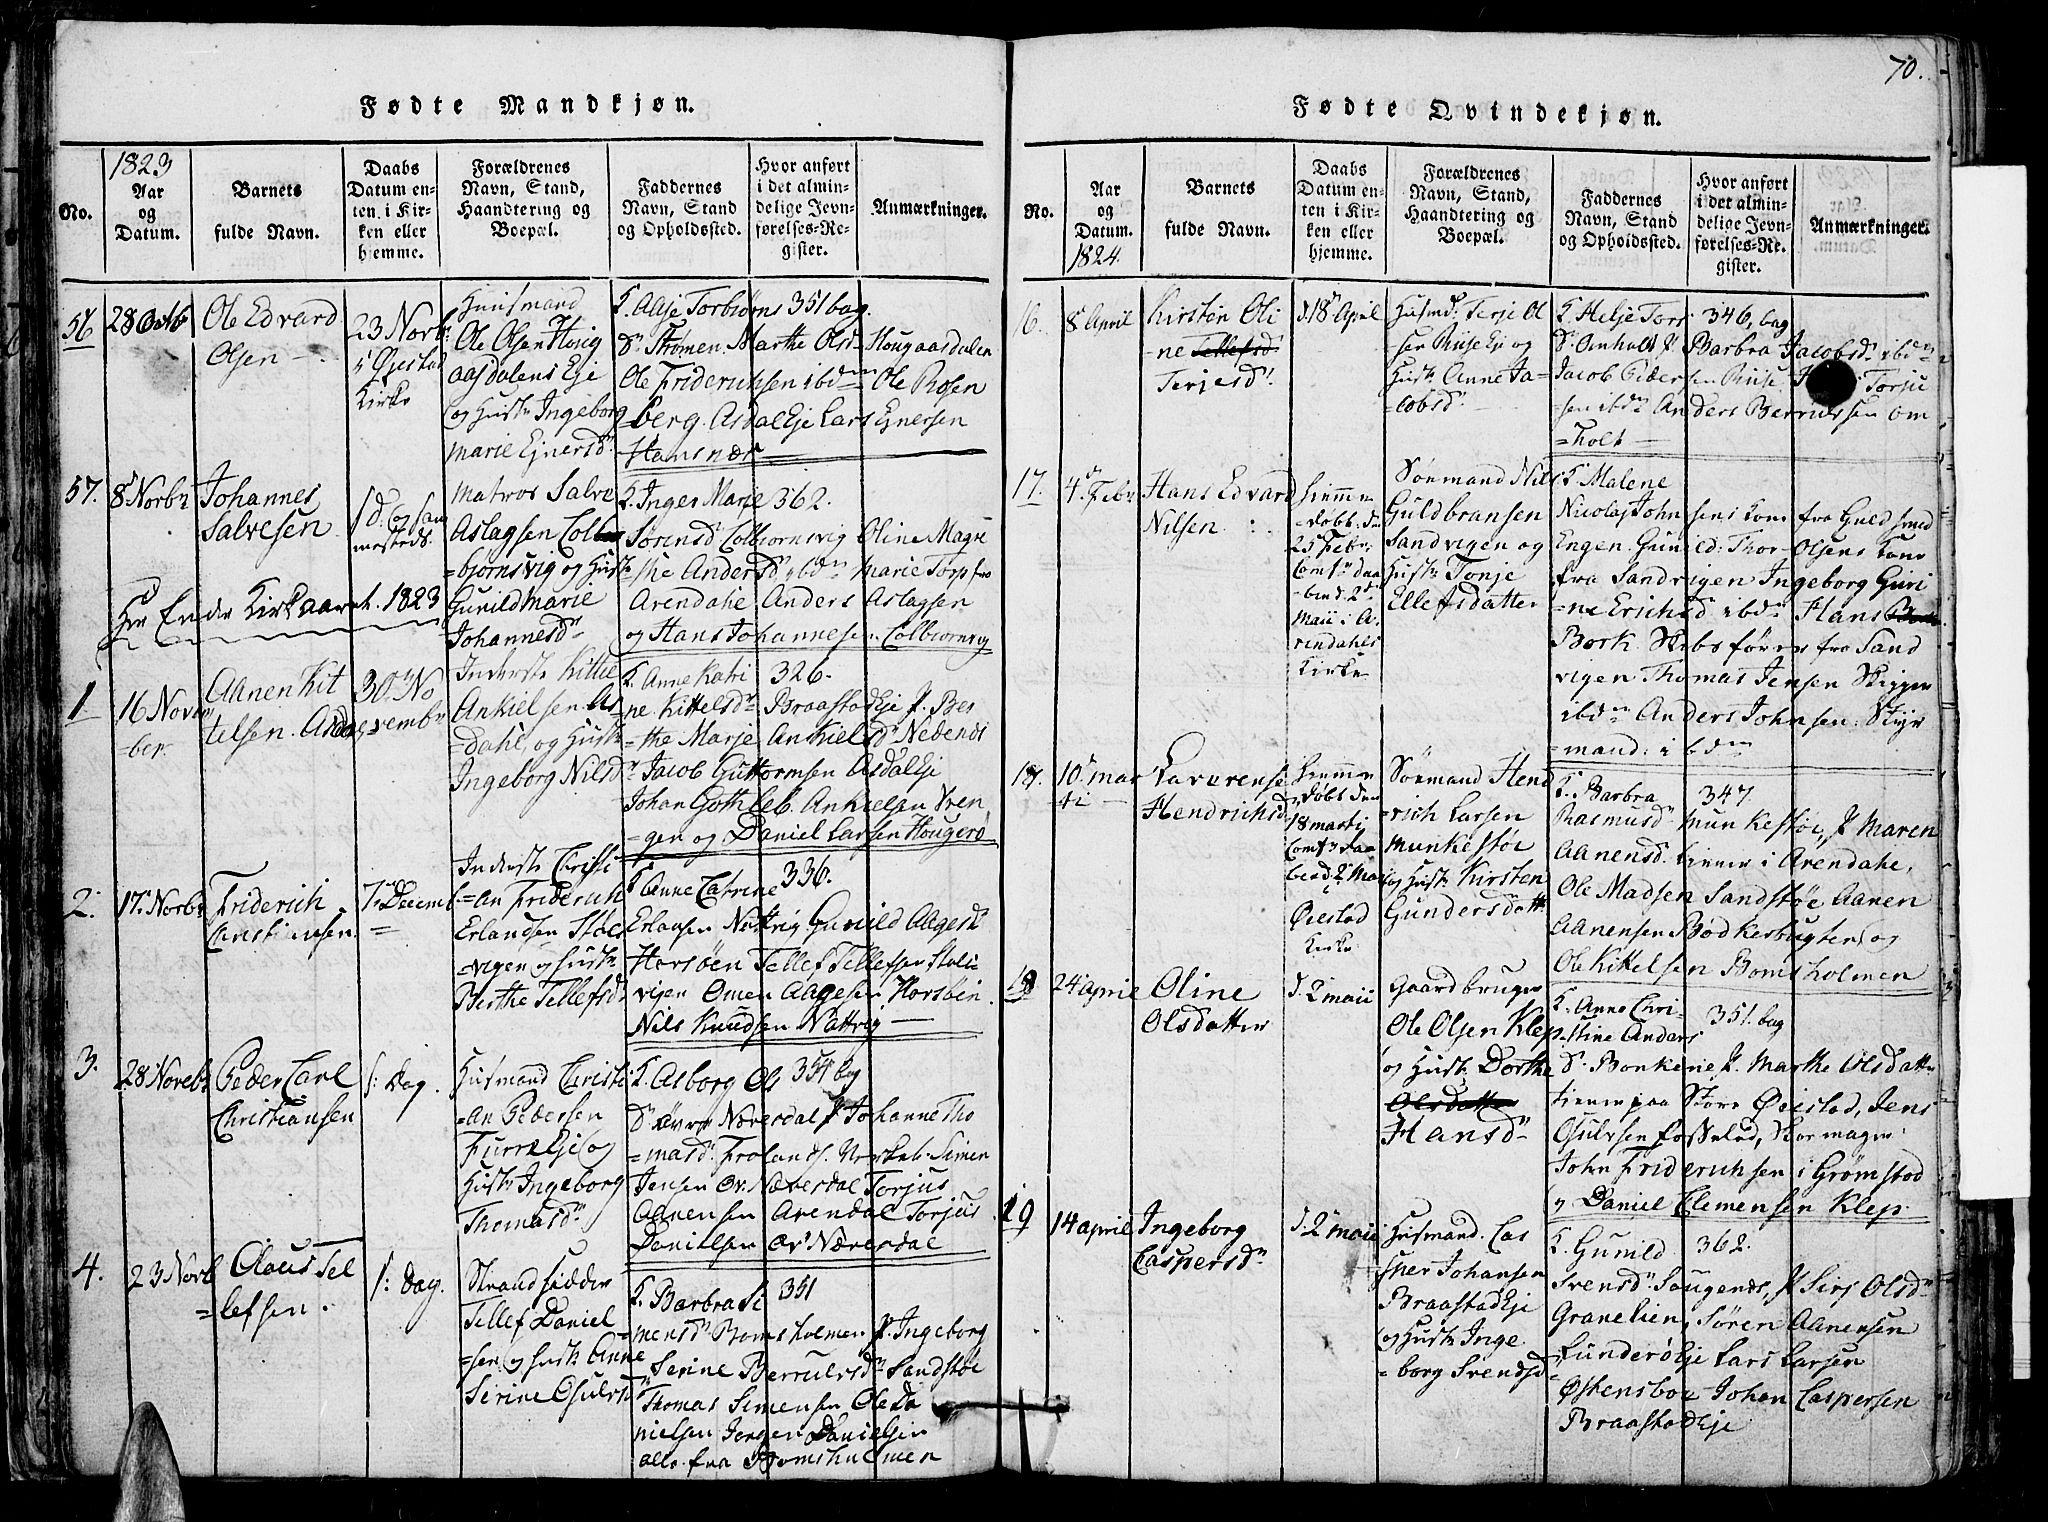 70.
Fødte Mandkjøn.
1823
No.
Aar
og
Datum.
Barnets
fulde Navn.
Daabs
Datum en-
ten i Kir-
ken eller
hjemme.
Forældrenes
Navn, Stand,
Haandtering og
Boepæl.
Faddernes
Navn, Stand
og Opholdssted.
Hvor anført
i det almin-
delige Jevn-
førelses-Re-
gister.
Anmærkninger.
56
28 Octb
Ole Edvard
Olsen
23 Norb
Øiestad
Kirke
Huusmand
Ole Olsen Houg
aasdalens Eje
og Hustr Ingeborg
Marie Ejnersd
F. Aasje Torbiørns 351 bag.
Strømen. Marthe Olsd Hougaasdalen
Ole Friderichsen ibdm Ole Rosen
=berg. Asdal Eje Lars Ejnersen
Hansnær
57.
8 Norbr
Johannes
Salvesen
d: og sam
mesteds.
Matros Salve
Aslagsen Colb
=bjørnsvig og Hustr
Gunild Marie
Johannesd
F. Inger Marie 362.
Sørensd Colbiornsvig Oline Magre
=the Andersd ibdm Marie Torp fra
Arendahl Anders Aslagsen
og Hans Johannesen Colbiornsvig
Her Ender Kirkaaret 1823
1
16 Novem
=ber.
Aanen Kit
telsen. Asdal
30 No
=vembr
Inderste Kittel
Ankielsen As
=dahl, og Hustr
Ingeborg Nilsd
F. Anne Katri 326.
ne Kittelsd Braastad Eje P. Ber
=the Marje Ankielsd Nedenes
Jacob Guttormsen Asdal Eje
Johan Gothleb. Ankielsen Vren
=gen og Daniel Larsen Hougerø
2.
17 Norbr
Friderich
Christiansen
7 Decemb
=
Inderste Christi
=an Friderich
Erlandsen Støls
=vigen og Hustr
Berthe Tellefsd
F. Anne Catrine 336.
Erlansen Nattvig Gunild Aagesd
Horsøen Tellef Tellefsen Støls
vigen Omen Aagesen Horsøen.
Nils Knudsen Nattvig
3.
28 Novebr
Peder Carl
Christiansen
s: Dag.
Husmand Christi
=an Pedersen
Furre Eje og
Hustr Ingeborg
Thomasd
F. Asborg Ols 351 bag
d øvre Næversdal P Johanne Tho
=masd: Froland. Simen
Jensen Ov. Næversdal Torjus
Aanensen Arendal Torjus
Danielsen Ov Næversdal
4.
23 Norb
=
Claus Tel
lefsen.
s: Dag.
Strandsidder
Tellef Daniel
=sen og Hustr Anne
Serine Osulvsd
F. Barbra Si 351
mensd Bomsholmen P. Ingeborg
Serine Berrulvsd Sandstøe
Thomas Simensen Ole Da
nielsen Jørgen Danielsen
alle fra Bomsholmen
Fødte Qvindekjøn.
No.
Aar
og
Datum.
1824
Barnets
fulde Navn.
Daabs
Datum en-
ten i Kir-
ken eller
hjemme.
Forældrenes
Navn, Stand,
Haandtering og
Boepæl.
Faddernes
Navn, Stand
og Opholdssted.
Hvor anført
i det almin-
delige Jevn-
førelses-Re-
gister.
Anmærkninger.
16.
8 April
Kirsten Oli
=ne Tellefsd
Terjesd
d. 18 April
Husmd: Terje Ol
sen Riise Eje og
Hustr Anne Ja=
=cobsd
F. Helje Tors 346, bag
d Omholt P Barbra Jacobsd ibdm
Jacob Pedersen Riise Torju
=sen ibdm Anders Berrulvsen om
=holt
17.
4 Febr
Hans Edvard
Nilsen
hiemme
=døbt. den
25 Febr
Comf daa
bend. 2
Maii i A.
rendahls
Kirke
Sømand Nils
Guldbransen
Sandvigen og
Hustr Tonje
Ellefsdatter
F. Malene
Nicolaj Johnsens Kone fra Guldsmed
Engen. Gunild: Thor Olsens Kone
fra Sandvigen Ingeborg Guri
=ne Erichsd ibdm Hans
Bork Skibsfører fra Sand
vigen Thomas Jensen Skipper
ibdm Anders Johnsen: Styr
=mand: ibdm
18.
10 mar
ti
Laverense
Hendrichsd
hiemme
døbt den
18 martij
Comf daa
bend. 2 Maii
i
Øiestad
Kirke
Sømand Hend
=rich Larsen
Munkestøe
og Hustr Kirsten
Gundersdatt
F. Barbra 347
Rasmusd Munkestøe, P Maren
Aanensd. tiener i Arendahl,
Ole Madsen Sandstøe Aanen
Aanensen Bødkerbugten og
Ole Kittelsen Bomsholmen
18
24 april
Oline
Olsdatter
d. 2 maii
Gaardbruger
Ole Olsen Klep
og Hustr Dorthe
Olsdatter
Hansd
F. Anne Chri- 351. bag
stine Anders
d. Bonkene P. Marthe Olsdatt
tiener paa Store Øiestad, Jens
Osulvsen Fosselud, Skomager
John Friderichsen i Grømstad
og Daniel Clemensen Klep.
19
14 april
Ingeborg
Caspersd
d. 2 maii
Husmand. Cas
sper Johansen
Braastad Eje
og Hustr Inge
=borg Svendsd
F. Gunild 362.
Svensd Saugenes, P Siri Olsd
Granelien, Søren Aanensen
Lunderø Eje Lars Larsen
Østensboe Johan Caspersen
Braastad Eje